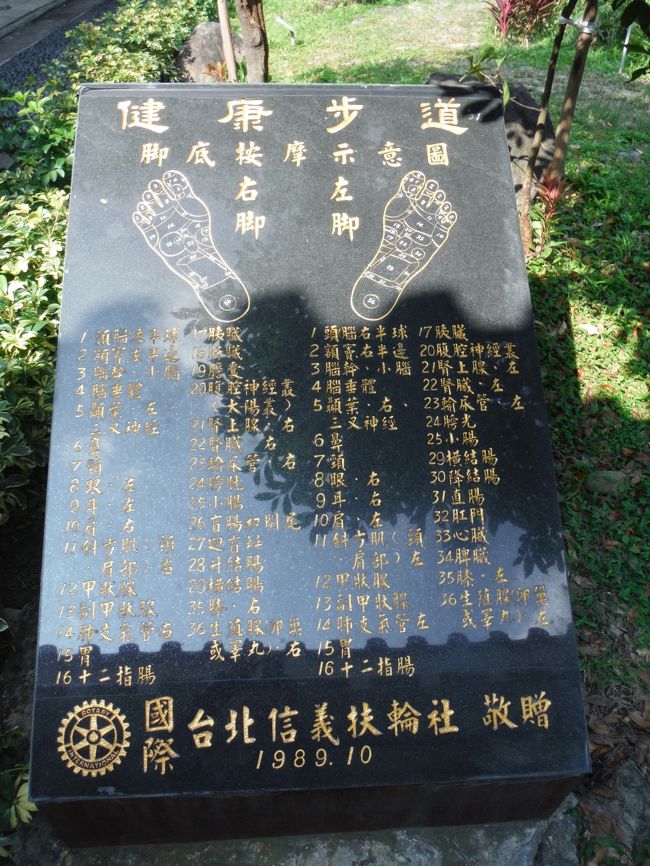 健康步道
脚底按摩示意圖
右脚
左脚
1 頭腦左半球
2 額竇左半邊
3 腦幹·小腦
4 腦垂體
5 顳葉·左
三叉神經
6 鼻
7 頸
8 眼·左
9 耳·左
10 肩·右
11 斜方肌(頸
肩部)右
12 甲狀腺
13 副甲狀腺
14 肺支氣管右
15 胃
16 十二指腸
17 胰臟
18 肝臟
19 膽囊
20 腹腔神經叢
(太陽叢)
21 腎上腺·右
22 腎臟·右
23 輸尿管·右
24 膀胱
25 小腸
26 盲腸和闌尾
27 迴盲
28 升結腸
29 橫結腸
35 膝·右
36 生殖腺(卵巢
或睪丸)·右
1 頭腦右半球
2 額竇右半邊
3 腦幹·小腦
4 腦垂體
5 顳葉·右、
三叉神經
6 鼻
7 頸
8 眼·右
9 耳·右
10 肩·左
11 斜方肌(頸
肩部)左
12 甲狀腺
13 副甲狀腺
14 肺支氣管左
15 胃
16 十二指腸
17 胰臟
20 腹腔神經叢
21 腎上腺·左
22 腎臟·左
23 輸尿管·左
24 膀光
25 小腸
29 橫結腸
30 降結腸
31 直腸
32 肛門
33 心臟
34 脾臟
35 膝·左
36 生殖腺(卵巢
或睪丸)左
ROTARY
INTERNATIONAL
國際
台北信義扶輪社 敬贈
1989.10